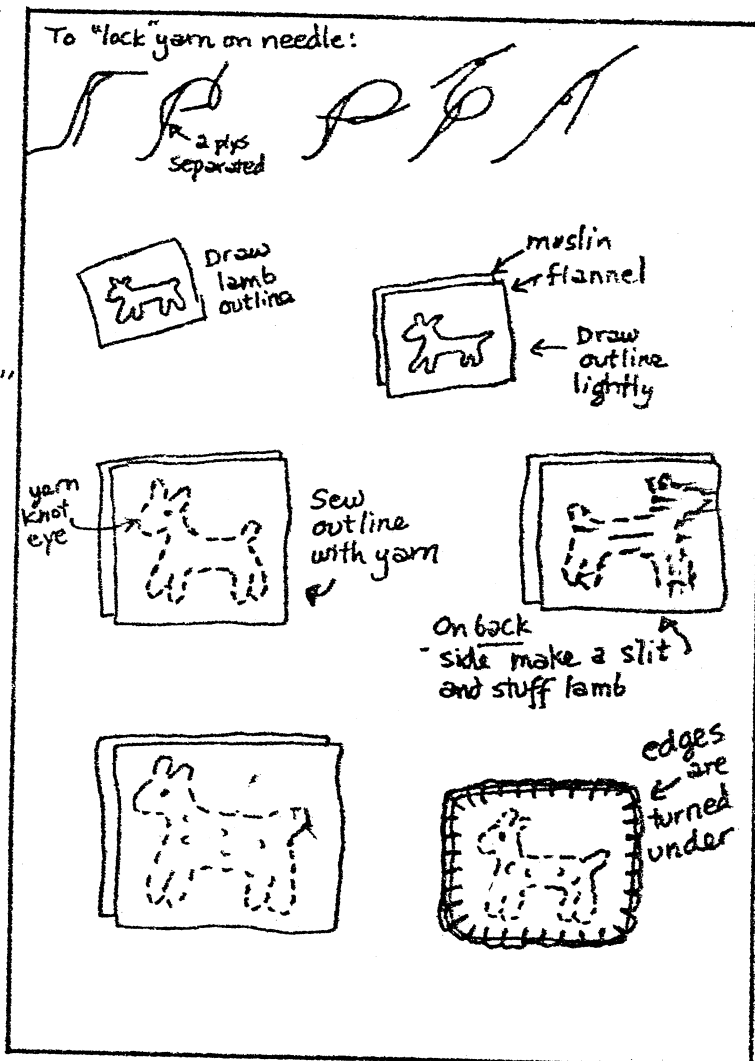 To "lock" yarn on needle:
2 plys
separated
Draw
lamb
outline
muslin
flannel
Draw
outline
lightly
yarn
knot
eye
Sew
outline
with yarn
On back
side make a slit
and stuff lamb
edges
are
turned
under